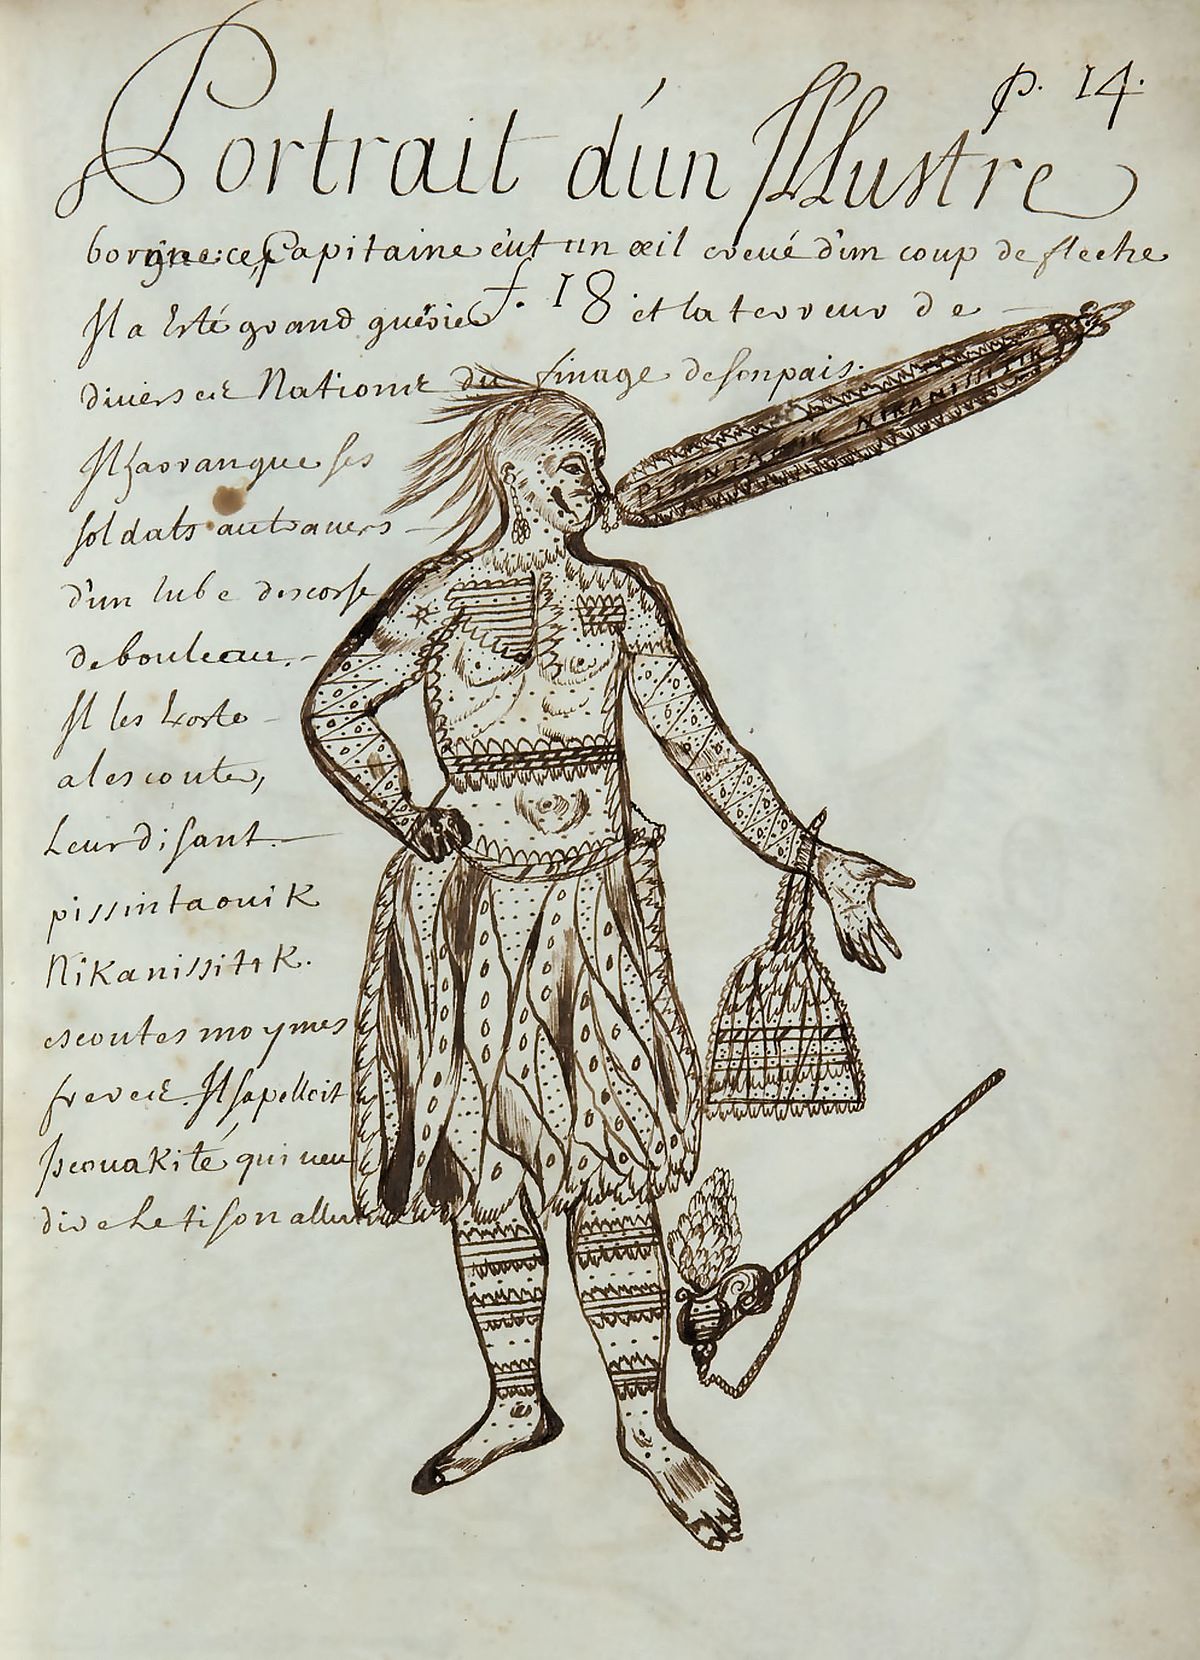 p. 14.
Portrait d'un Illustre
borgne: ce Capitaine eut un œil crevé d'un coup de fleche
Il a Esté grand guérier f. 18 et la terreur de
diverses Nations du finage de son pais.
Il harangue ses
soldats au travers
d'un tube descorse
de bouleau.
Il les Exorte
a l escouter,
Leur disant
pissintaouik
Nikanissitik.
escoutes moy mes
freres. Il sapelloit
Iscouakité, qui veu
dire Le tison allumé
PISSINTAOUIK NIKANISSITIK